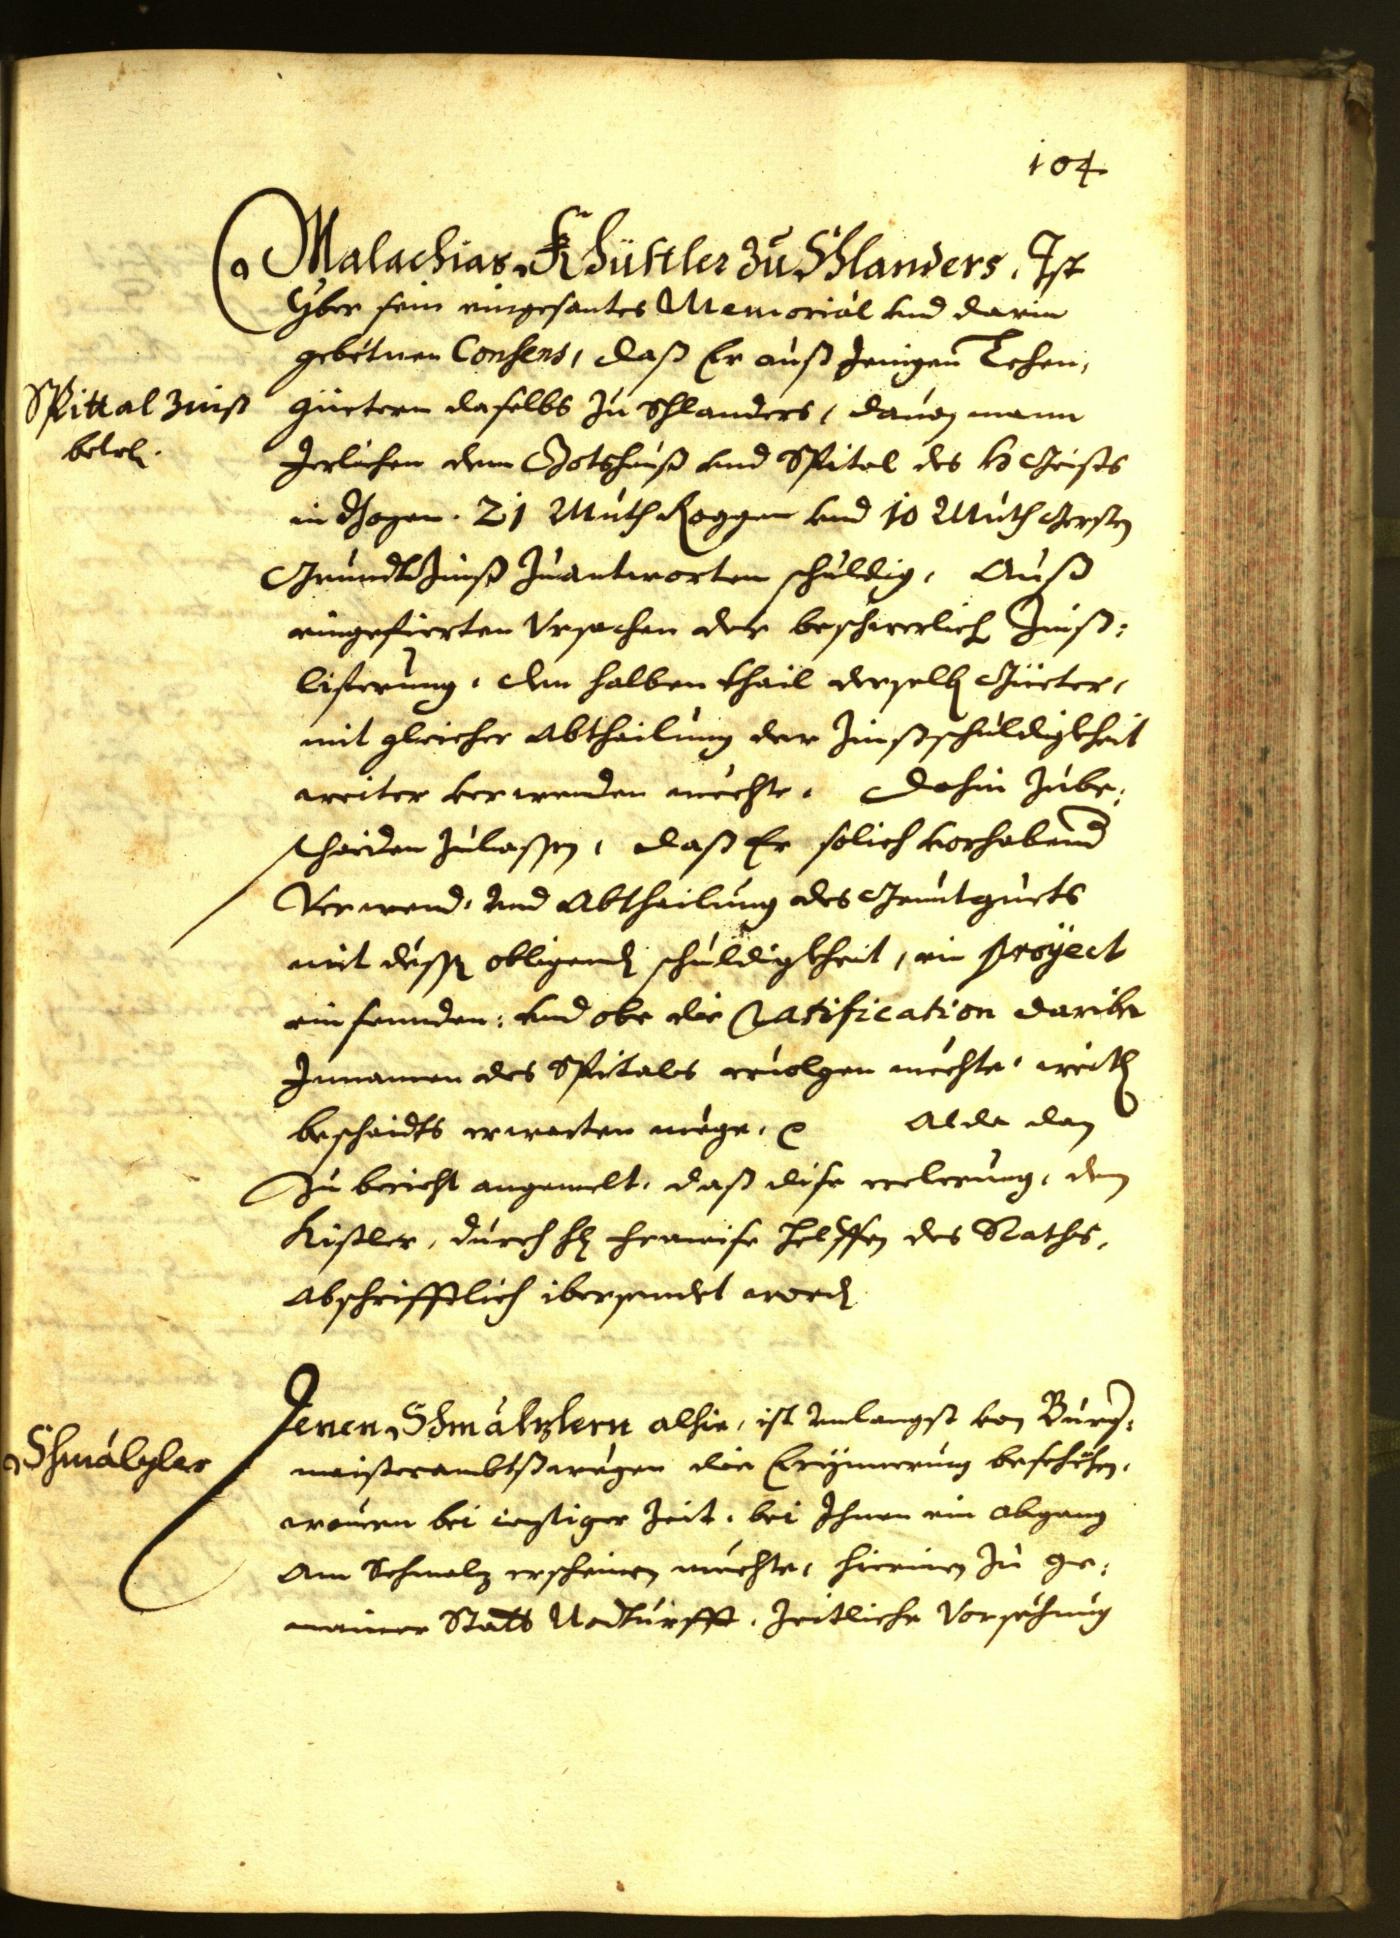 104
Malachias Khüstler zu Schlanders, Ist
yber sein eingesantes Memorial und darin
gebetnen Consens, daß Er auß Jenigen Lehen,
Spittal Zinß
betreff.
güetern daselbs zu Schlanders, davon mann
Jerlichen dem Gotshauß und Spital des H Geists
in Bozen. 21 Muth Roggen und 10 Muth Gersten
Grundtzinß zuantworten schuldig, Auß
eingefierten Ursachen der beschwerlich Zinß:
liferung, den halben thail derselben Güeter,
mit gleicher Abthailung der Zinßschuldigkheit
weiter verwenden mechte. Dahin zube:
schaiden zulassen, daß Er solich vorhabend
Verwend. und Abthailung des Grunt guets
mit dessen obligenden schuldigkheit, ein Proyect
einsennden: und obe die Ratification dariber
Innamen des Spitals ervolgen mechte, weitern
beschaidts erwarten müge. Alda dan
Zu bericht angemelt, daß dise erlerung, dem
Kistler, durch Hn Helffen des Raths,
Abschrifftlich ibersendet worden
Schmälzler
Jenen Schmälzlern alhie, ist unlangst von Burg:
maisterambtßwegen die Erynnerung beschehen,
wouern bei ieztiger Zeit, bei Ihnen ein abgang
Am Schmalz erscheinen mechte, hierinen zu ge:
mainer Statt Nodturfft, Zeitliche Vorsehung